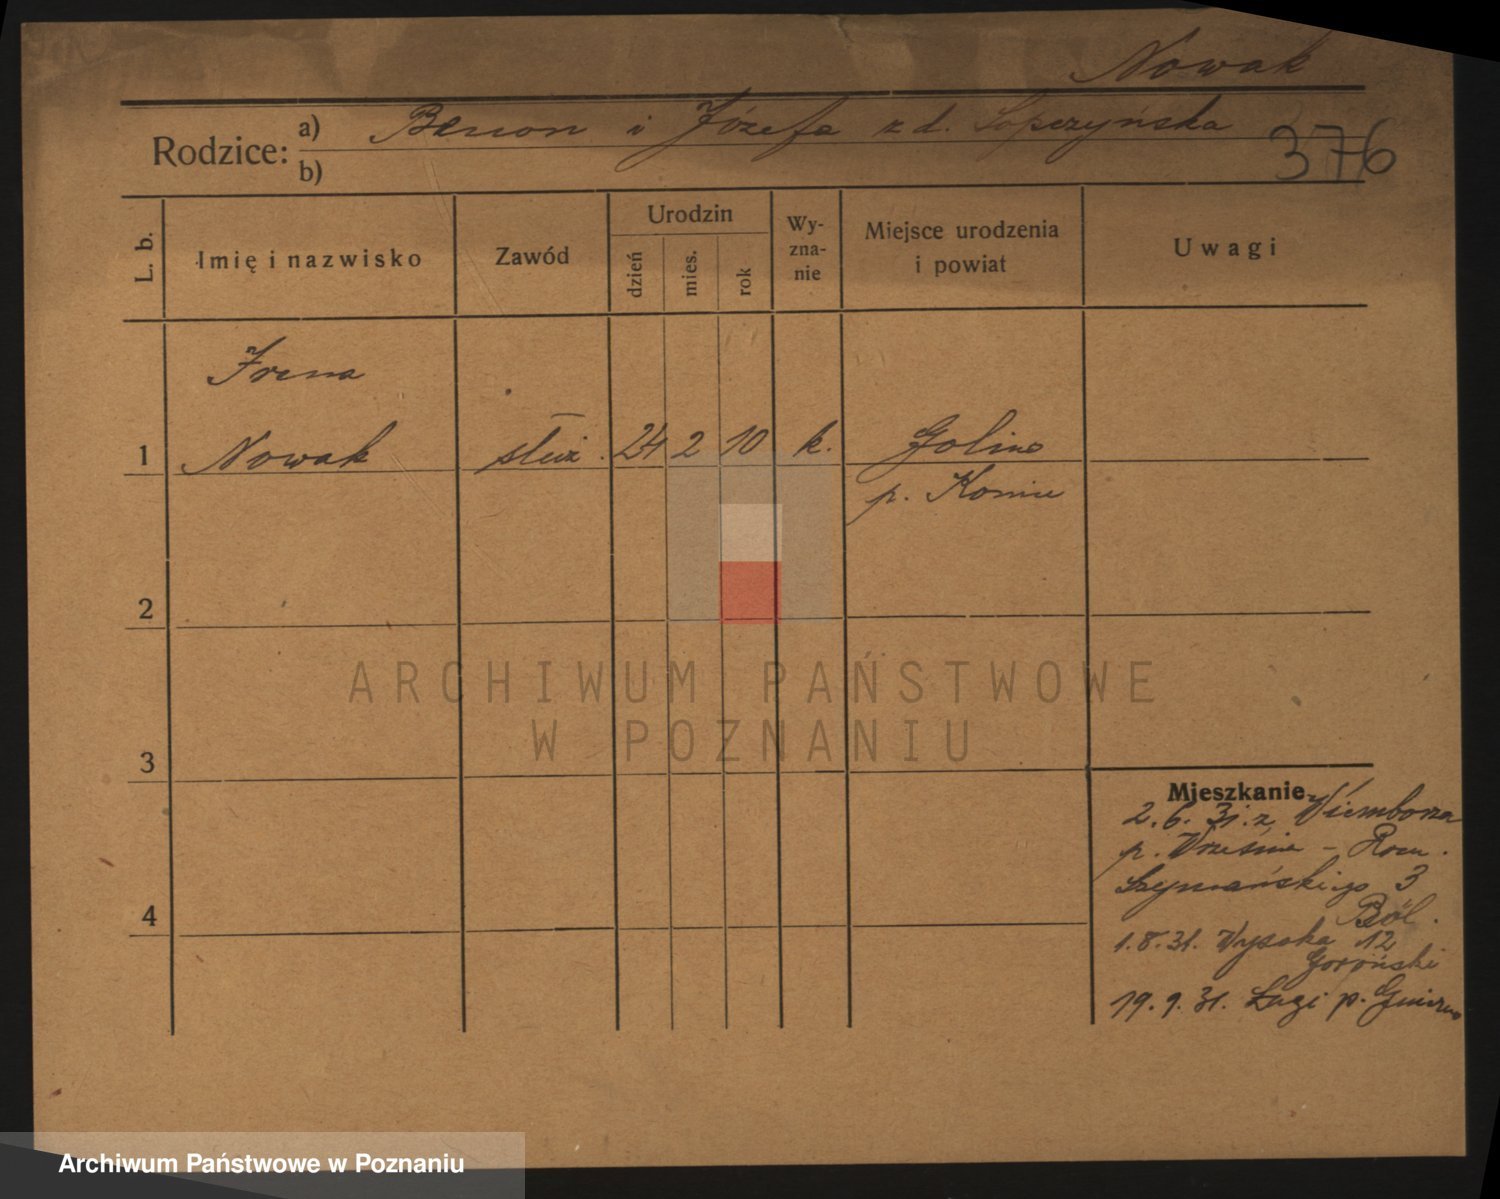 Nowak
Rodzice: a) Benon i Józefa z d. Łopczyńska
b)
376
L. b.
Imię i nazwisko
Zawód
Urodzin
dzień
mies.
rok
Wy-
zna-
nie
Miejsce urodzenia
i powiat
Uwagi
Irena
1 Nowak służ. 24 2 10 k. Golina
p. Konin
2
ARCHIWUM PAŃSTWOWE
W POZNANIU
3
Mieszkanie
2.6.31. z
p. Września -
Szymańskiego 3
1.8.31. Wysoka 12
19.9.31. Łagi p. Gniezno
4
Archiwum Państwowe w Poznaniu